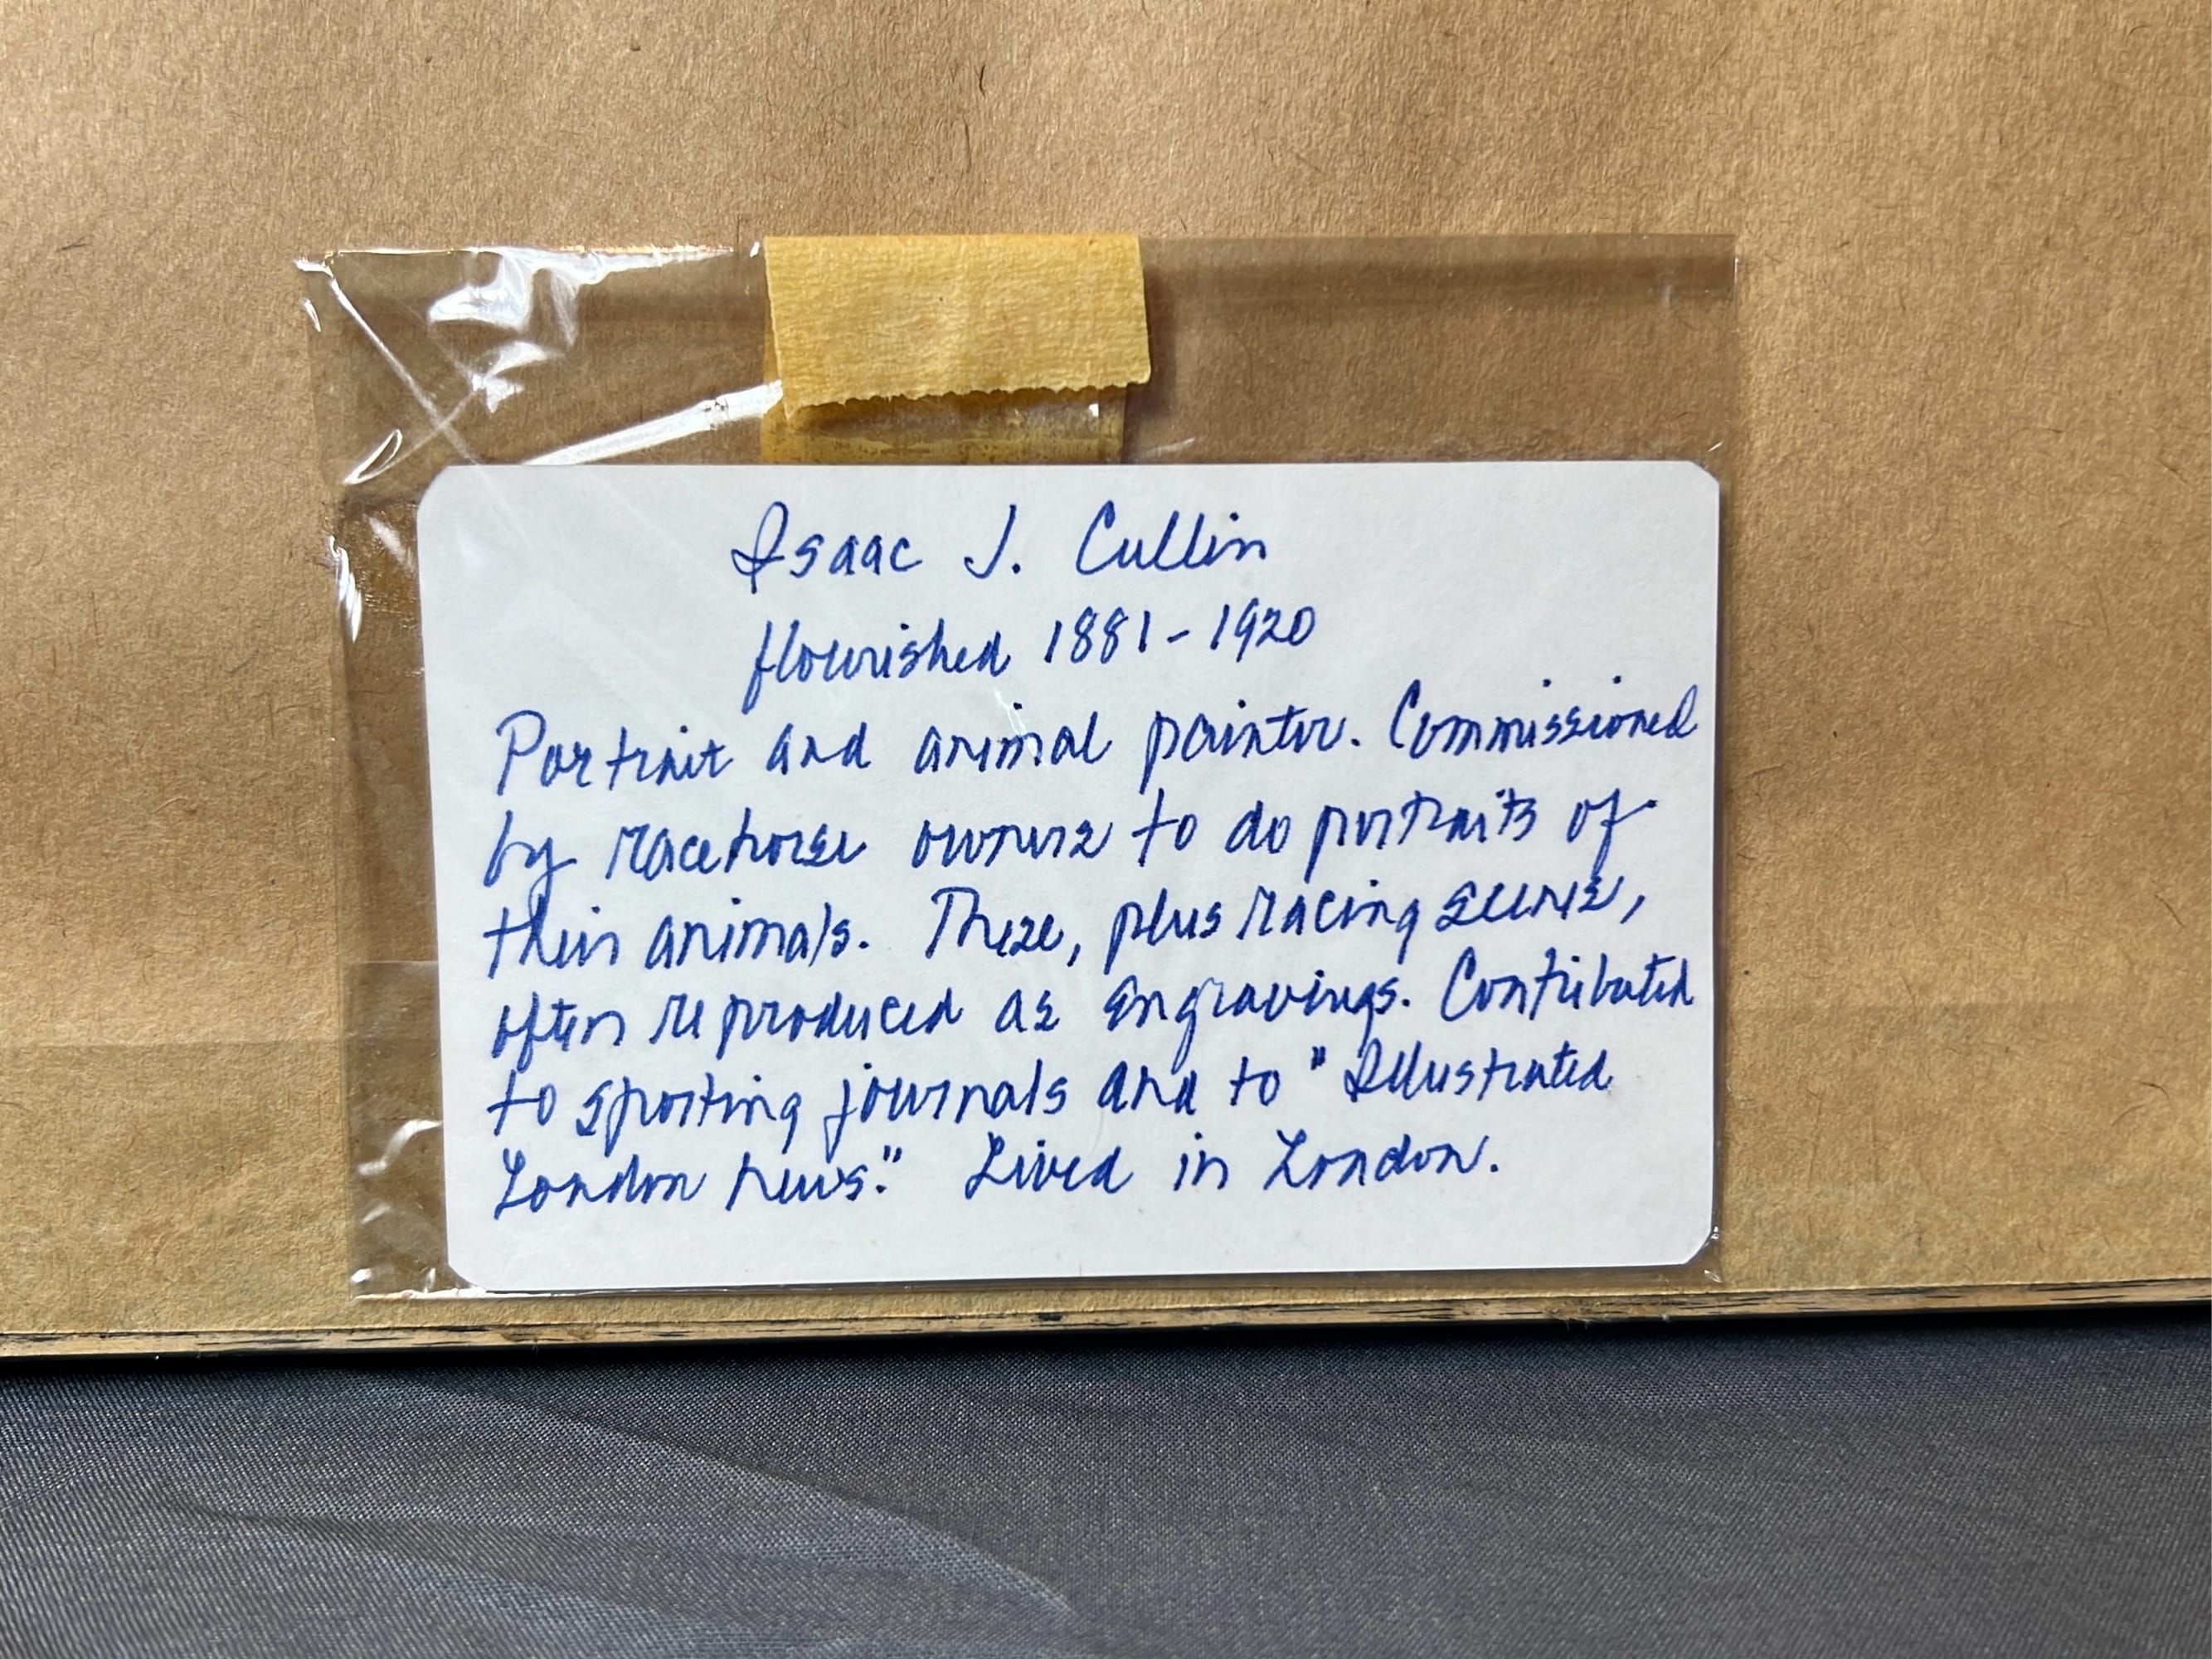 Isaac J. Cullin
flourished 1881-1920
Portrait and animal painter. Commissioned
by racehorse owners to do portraits of
their animals. These, plus racing scenes,
often reproduced as engravings. Contributed
to sporting journals and to "Illustrated
London News." Lived in London.